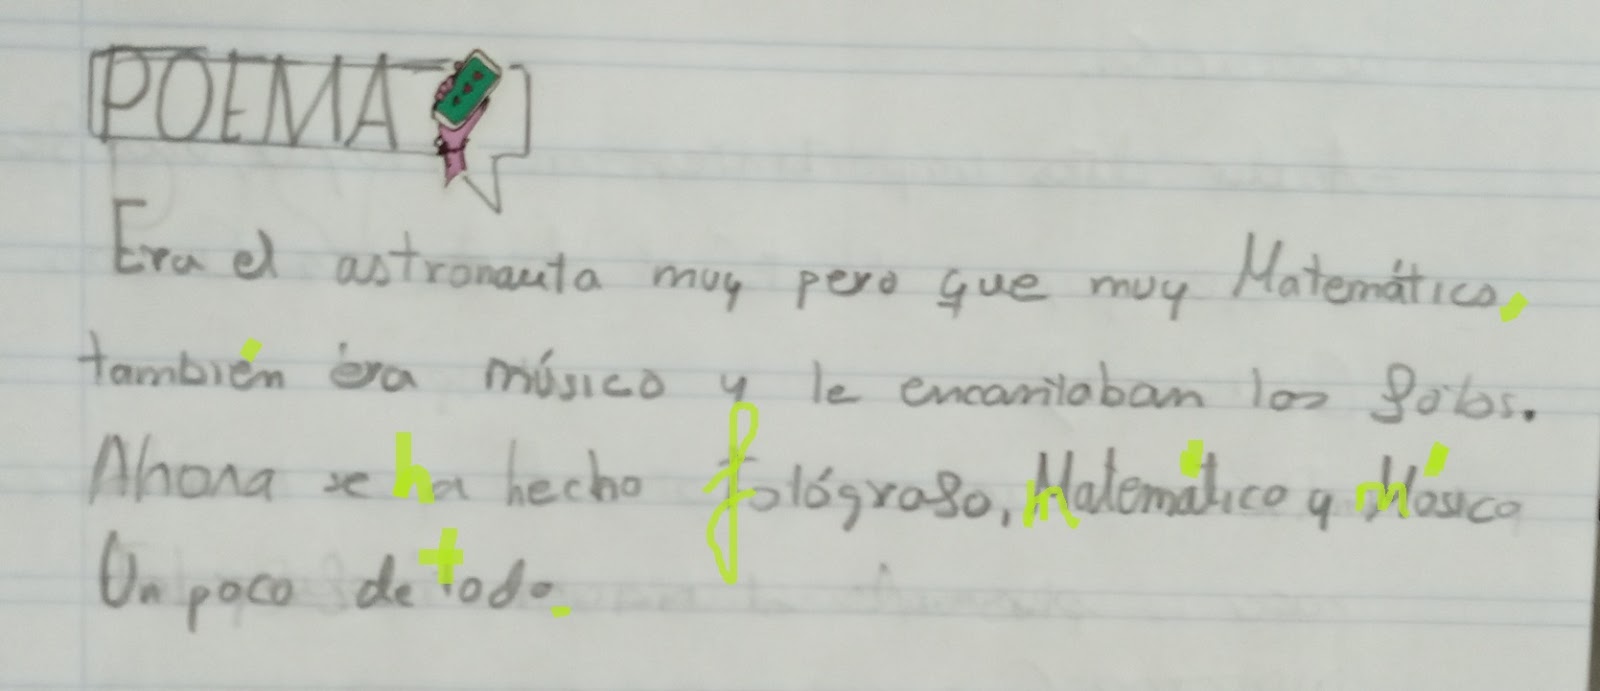 POEMA
Era el astronauta muy pero que muy Matemático,
también era músico y le encantaban las fotos.
Ahora se ha hecho fotógrafo, matemático y músico
Un poco de todo.